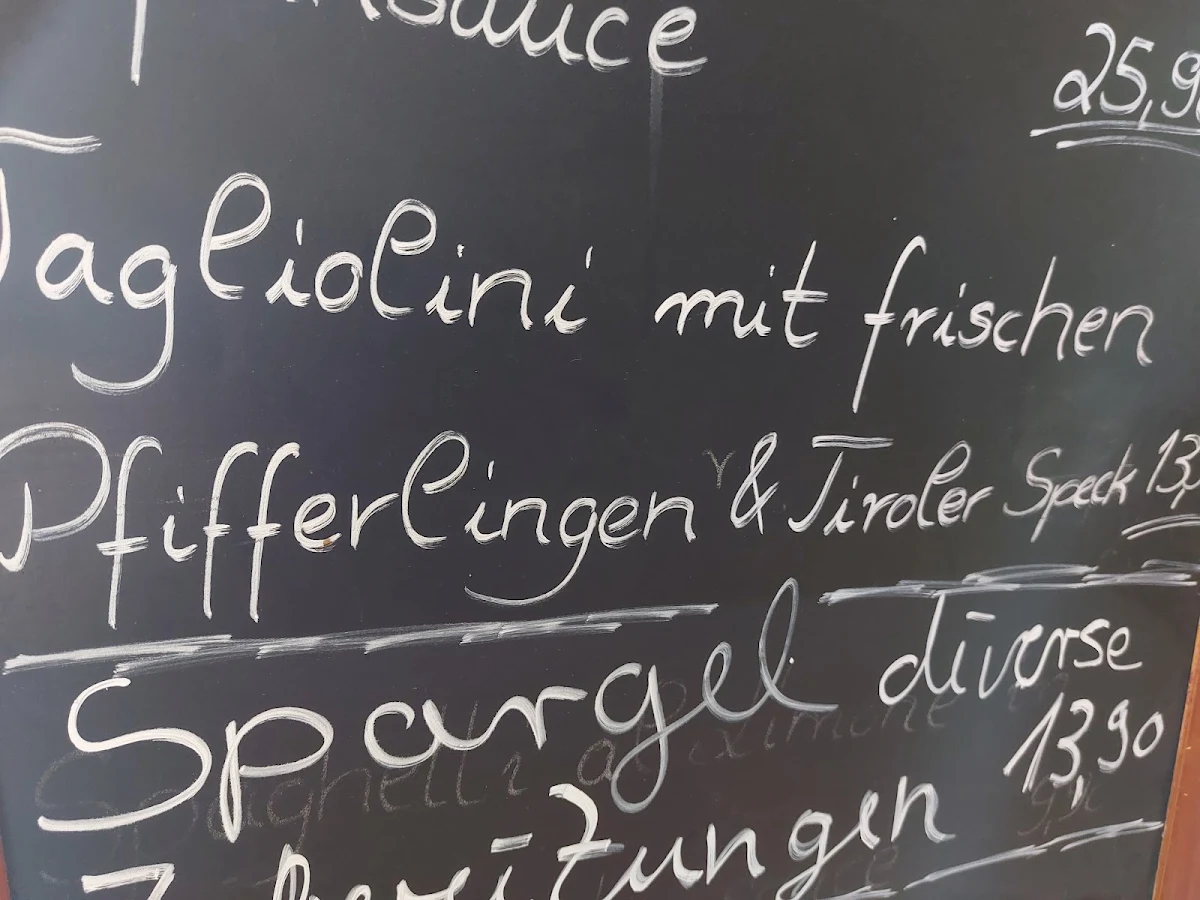 sauce 25,90
Tagliolini mit frischen
Pfifferlingen & Tiroler Speck 13,
Spargel diverse
Zubereitungen 13,90